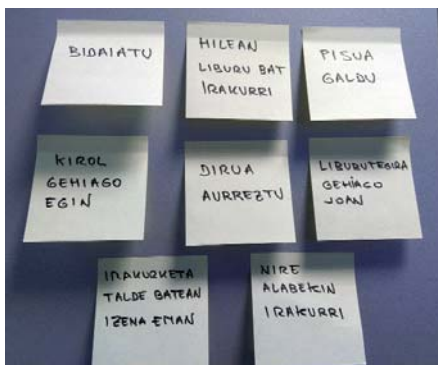 BIDAIATU
HILEAN
LIBURU BAT
IRAKURRI
PISUA
GALDU
KIROL
GEHIAGO
EGIN
DIRUA
AURREZTU
LIBURUTEGIRA
GEHIAGO
JOAN
IRAKURKETA
TALDE BATEAN
IZENA EMAN
NIRE
ALABEKIN
IRAKURRI